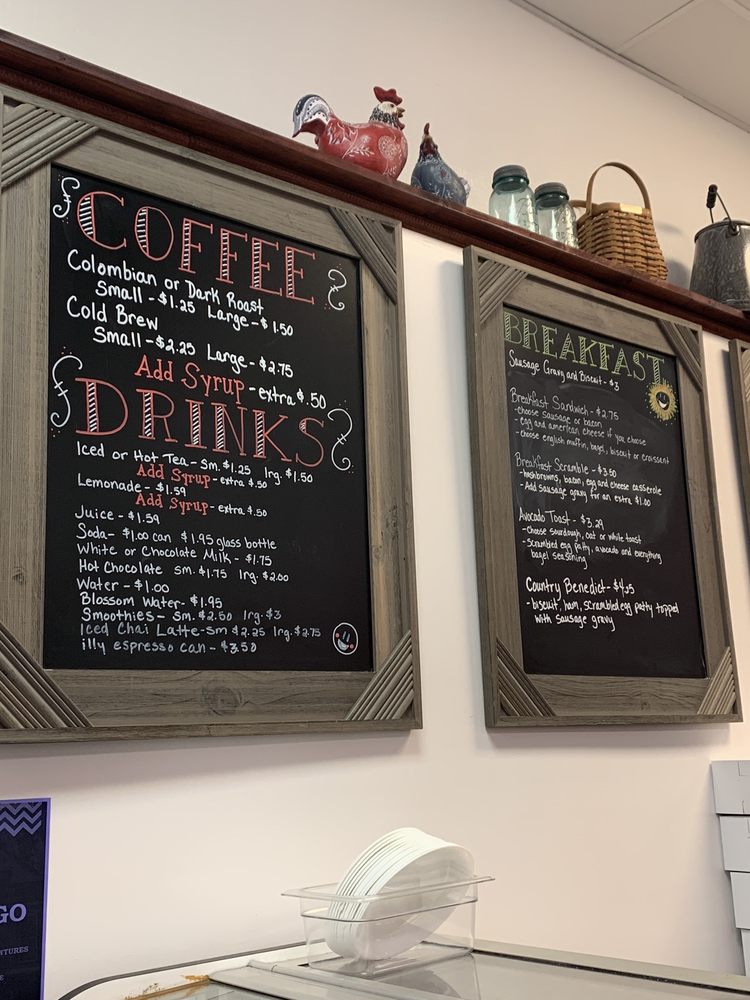 COFFEE
Colombian or Dark Roast
Small - $1.25 Large - $1.50
Cold Brew
Small - $2.25 Large - $2.75
Add Syrup - extra $.50
DRINKS
Iced or Hot Tea - Sm. $1.25 lrg. $1.50
Add Syrup - extra $.50
Lemonade - $1.59
Add Syrup - extra $.50
Juice - $1.59
Soda - $1.00 can $1.95 glass bottle
White or Chocolate Milk - $1.75
Hot Chocolate sm. $1.75 lrg. $2.00
Water - $1.00
Blossom Water - $1.95
Smoothies - sm. $2.50 lrg - $3
Iced Chai Latte - sm $2.25 lrg. $2.75
illy espresso can - $3.50
BREAKFAST
Sausage Gravy and Biscuit - $3
Breakfast Sandwich - $2.75
- choose Sausage or bacon
- egg and american cheese if you choose
- choose english muffin, bagel, biscuit or croissant
Breakfast Scramble - $3.50
- hashbrowns, bacon, egg and cheese casserole
- Add sausage gravy for an extra $1.00
Avocado Toast - $3.29
- choose sourdough, oat or white toast
- scrambled egg patty, avocado and everything
bagel seasoning
Country Benedict - $4.25
- biscuit, ham, scrambled egg patty topped
with sausage gravy
GO
NTURES